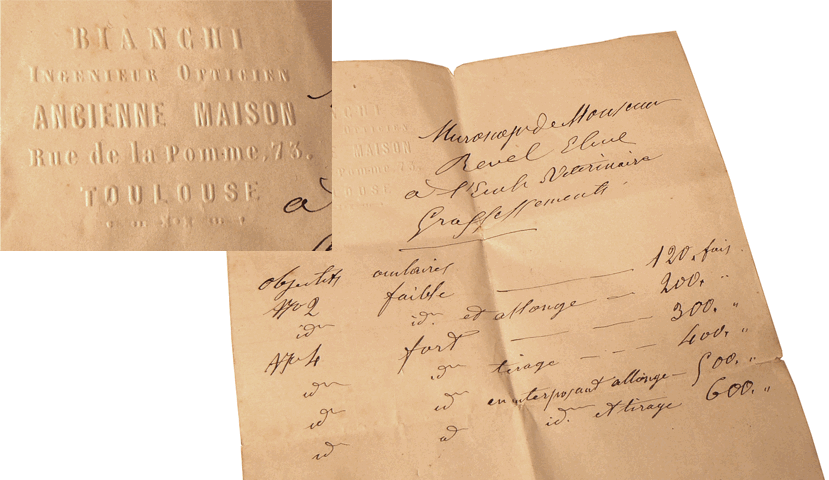 BIANCHI
INGENIEUR OPTICIEN
ANCIENNE MAISON
Rue de la Pomme, 73.
TOULOUSE
CHI
MAISON
Pomme, 73.
OUSE
Microscope de Monsieur
Revel Elève
à l'Ecole Vétérinaire
Grossissements
objectifs oculaires
No 2 faible 120. fois
idm idm et allonge 200. "
No 4 fort 300. "
idm idm tirage 400. "
idm id en interposant allonge 500. "
idm id id. et tirage 600. "